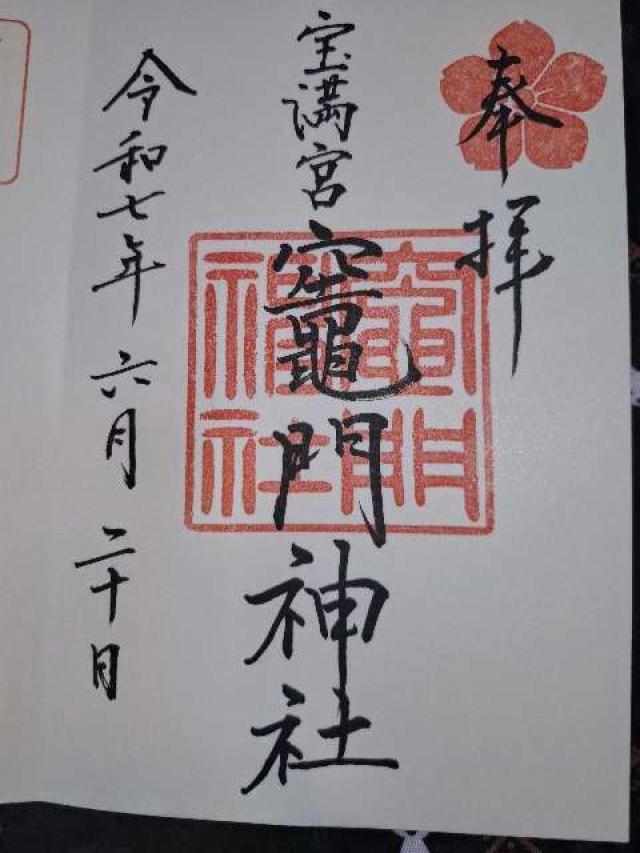 奉拝
宝満宮
竈門神社
竈門
神社
令和七年六月二十日